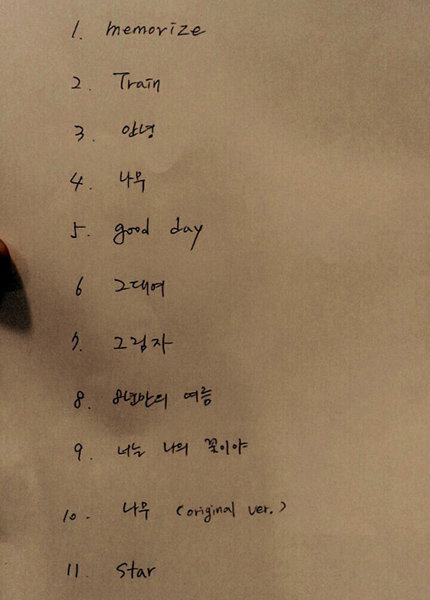 1. memorize
2. Train
3. 안녕
4. 나무
5. good day
6 그대여
7. 그림자
8. 8년만의 여름
9. 너는 나의 꽃이야
10. 나무 (original ver.)
11. Star